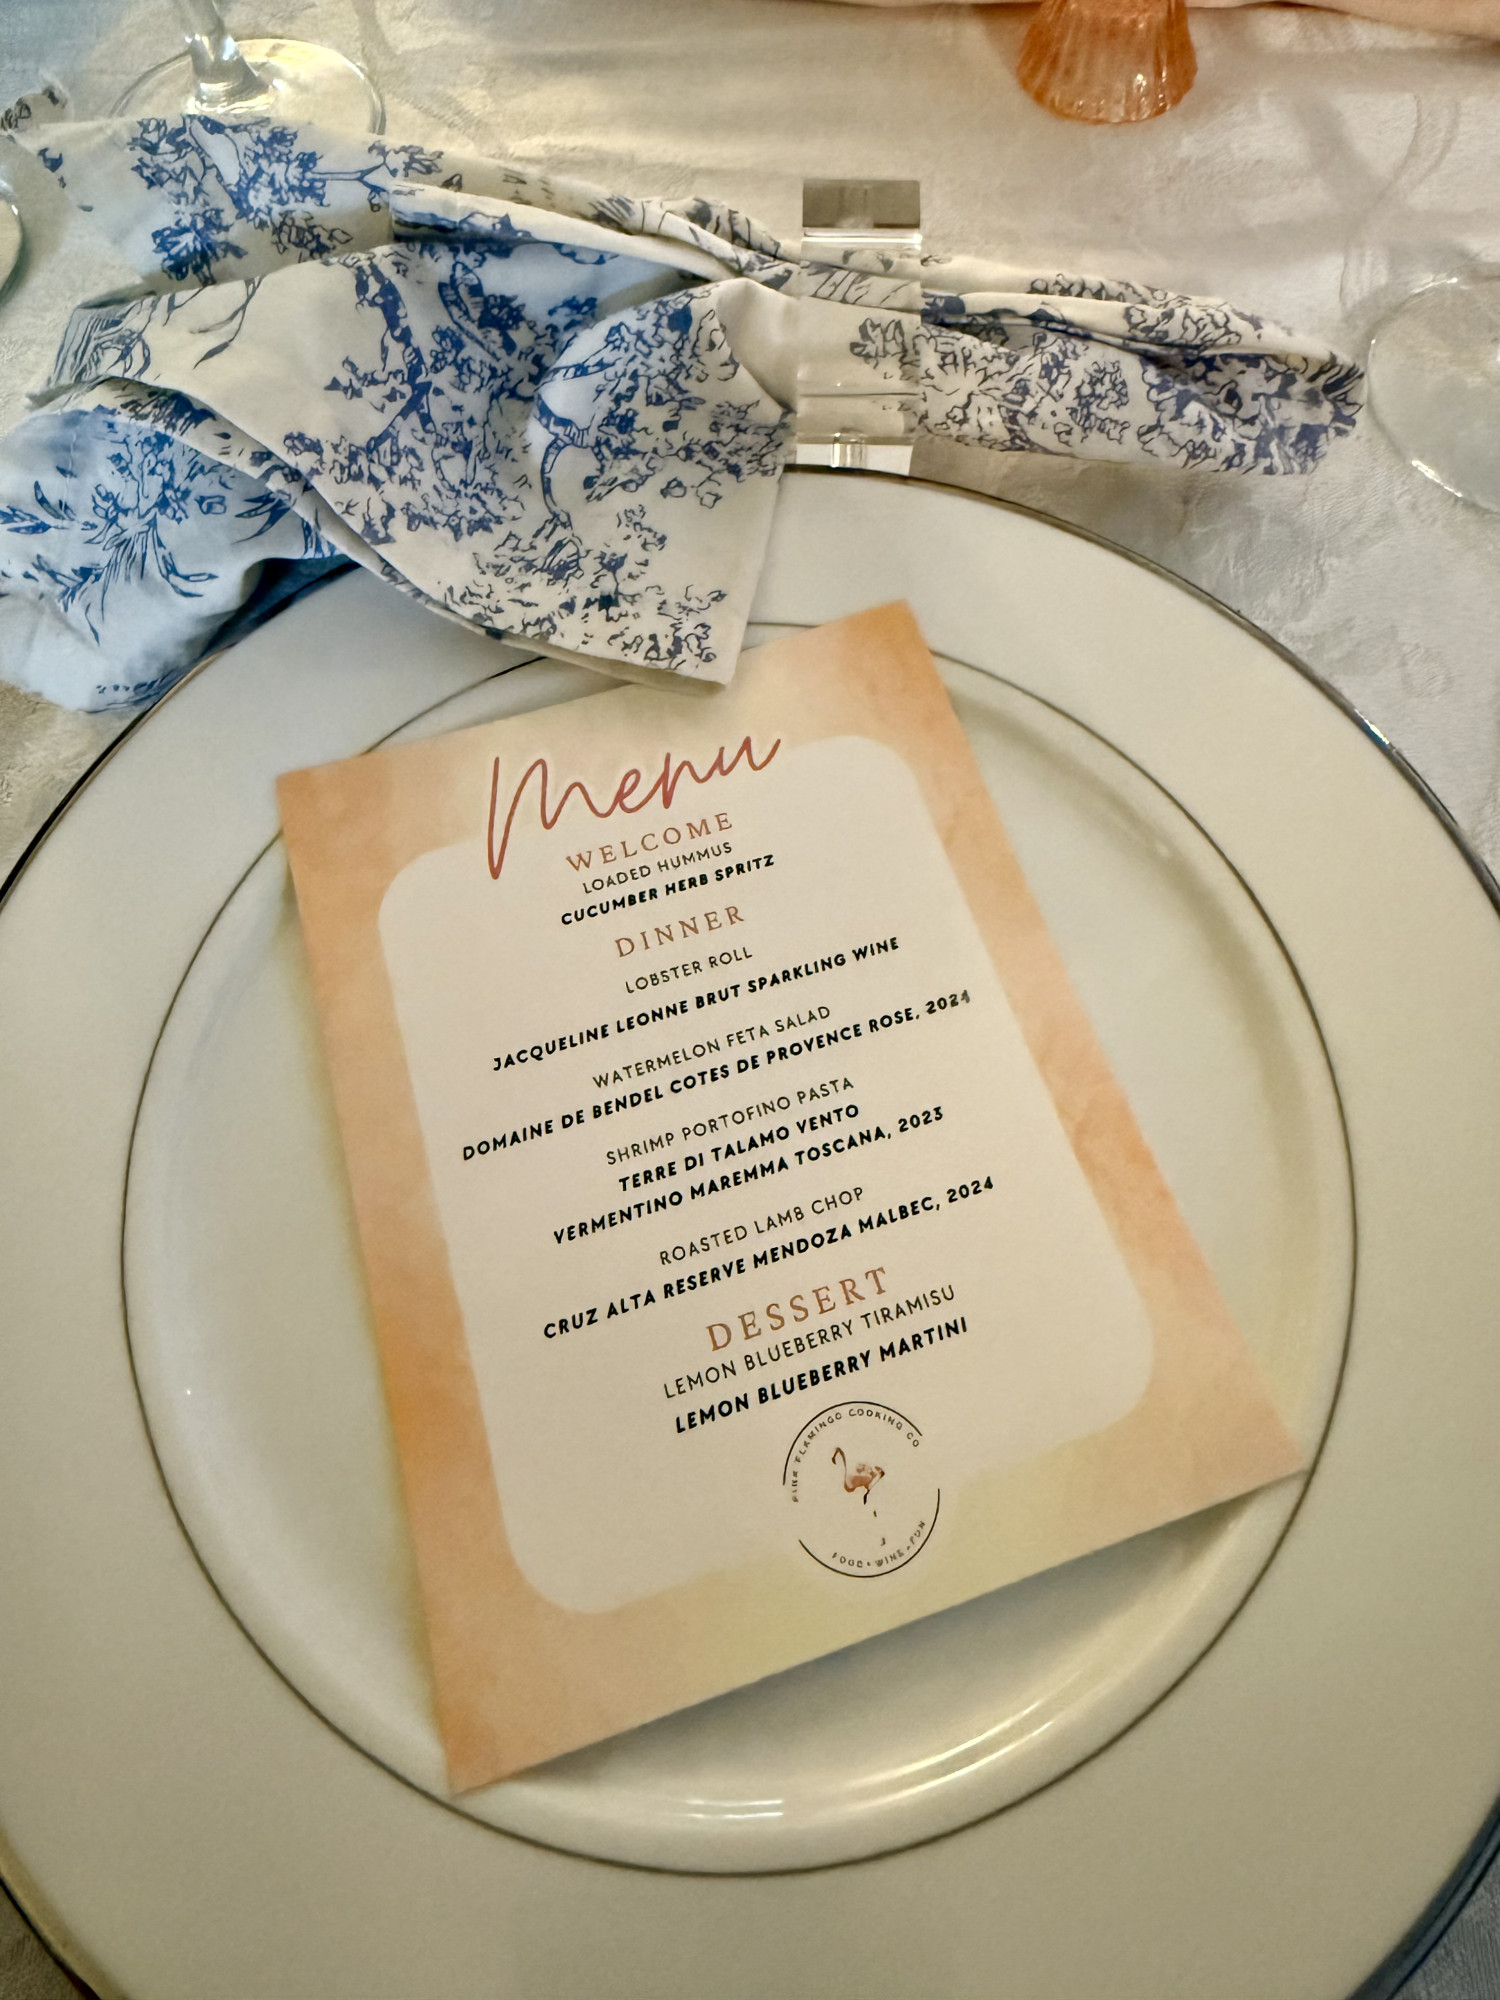 Menu
WELCOME
LOADED HUMMUS
CUCUMBER HERB SPRITZ
DINNER
LOBSTER ROLL
JACQUELINE LEONNE BRUT SPARKLING WINE
WATERMELON FETA SALAD
DOMAINE DE BENDEL COTES DE PROVENCE ROSE, 2024
SHRIMP PORTOFINO PASTA
TERRE DI TALAMO VENTO
VERMENTINO MAREMMA TOSCANA, 2023
ROASTED LAMB CHOP
CRUZ ALTA RESERVE MENDOZA MALBEC, 2024
DESSERT
LEMON BLUEBERRY TIRAMISU
LEMON BLUEBERRY MARTINI
PINK FLAMINGO COOKING CO
FOOD • WINE • FUN